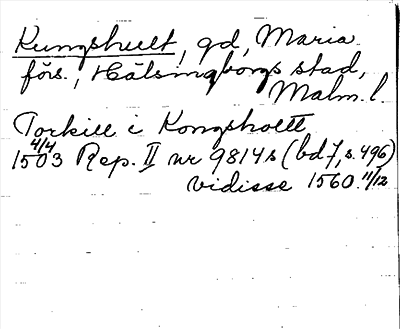 Kungshult, gd, Maria
förs., Hälsingborgs stad,
Malm. l.
Torkill i Kongshollt
1503 4/4 Rep. II nr 9814s (bd 7, s. 496)
vidisse 1560 11/12